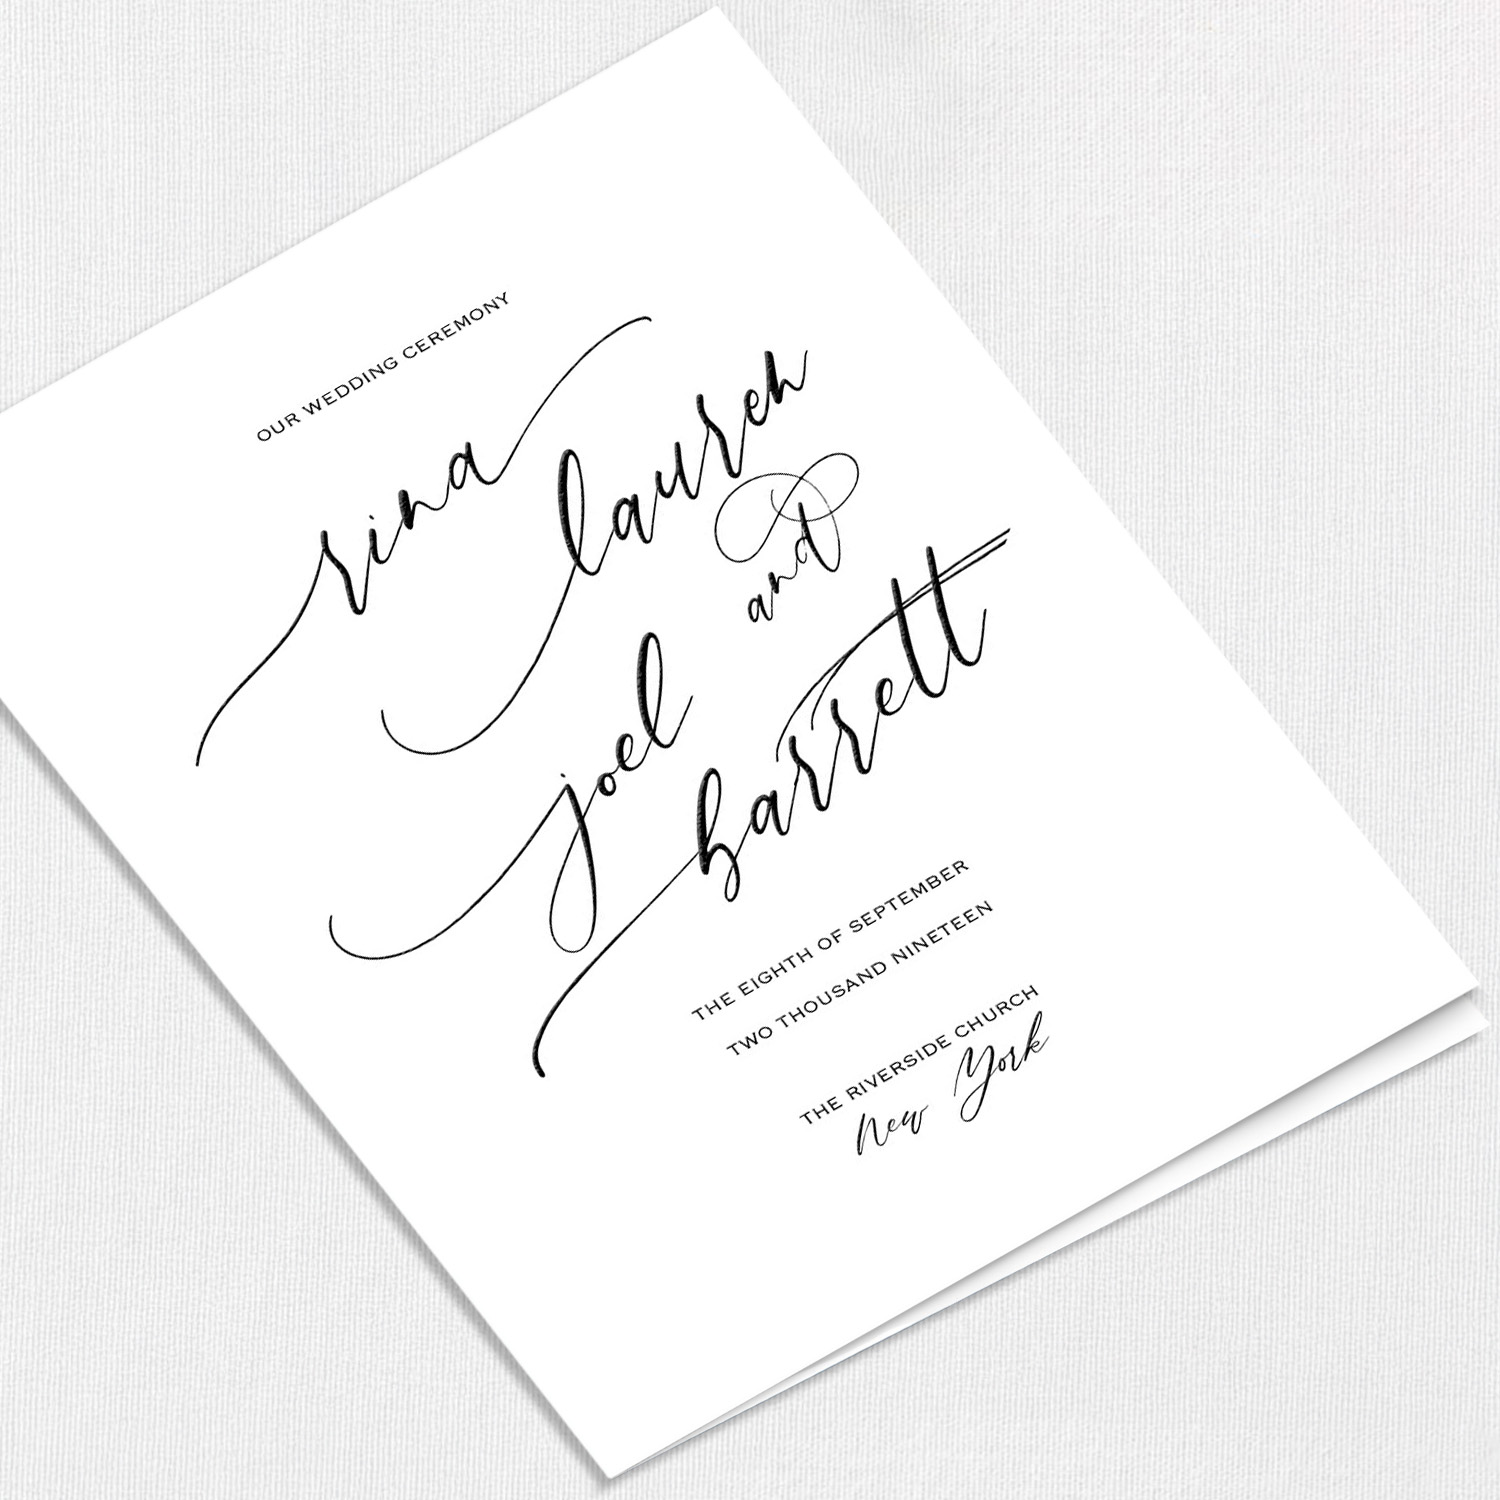 OUR WEDDING CEREMONY
rina
lauren
and
joel
barrett
THE EIGHTH OF SEPTEMBER
TWO THOUSAND NINETEEN
THE RIVERSIDE CHURCH
New York